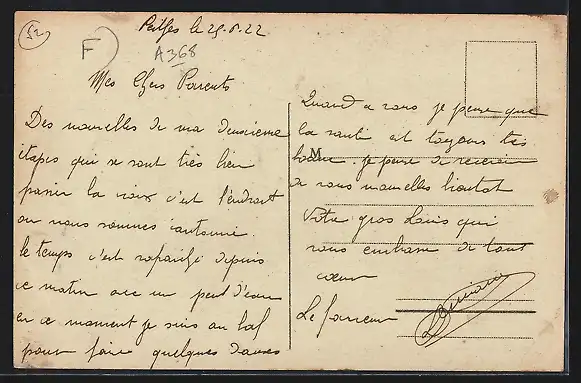 52
F
le 29.8.22
A368
Mes Chers Parents
Des nouvelles de ma deuxieme
étapes qui se sont très bien
passer la croix c'est l'endroit
ou nous sommes cantonné.
le temps c'est rafraichi depuis
ce matin avec un peut d'eau
en ce moment je suis au bal
pour faire quelques danses
Quand a vous je pense que
la santé est toujours très
bonne. je pense de recevoir
M
de vous nouvelles bientot
Votre gros Louis qui
vous embrasse de tout
coeur
Le